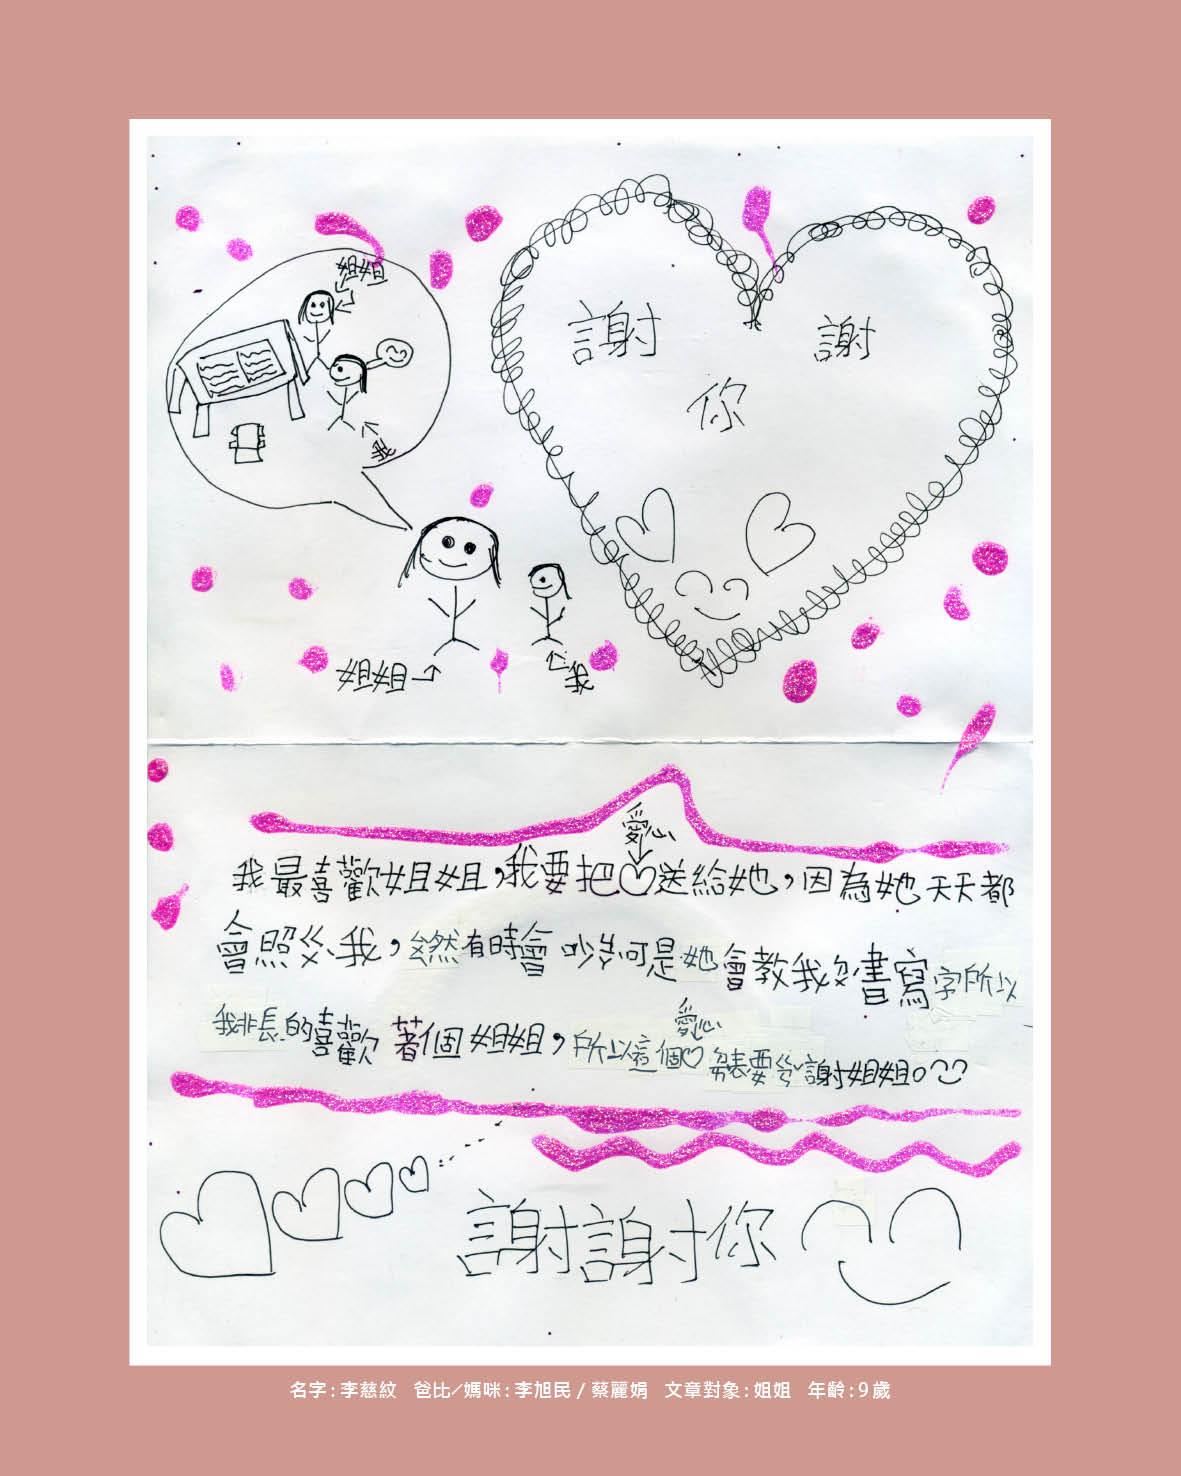 姐姐
我
謝 謝
你
姐姐
我
愛心
我最喜歡姐姐,我要把♡送給她,因為她天天都
會照ㄍㄨˋ我,ㄙㄨㄟ然有時會吵ㄐㄧㄚˋ可是她會教我ㄋㄧㄢˋ書寫字所以
我非長的喜歡著個姐姐,所以這個♡ 表要ㄍㄢˇ謝姐姐。
愛心
謝謝你
名字:李慈紋 爸比/媽咪:李旭民/蔡麗娟 文章對象:姐姐 年齡:9歲